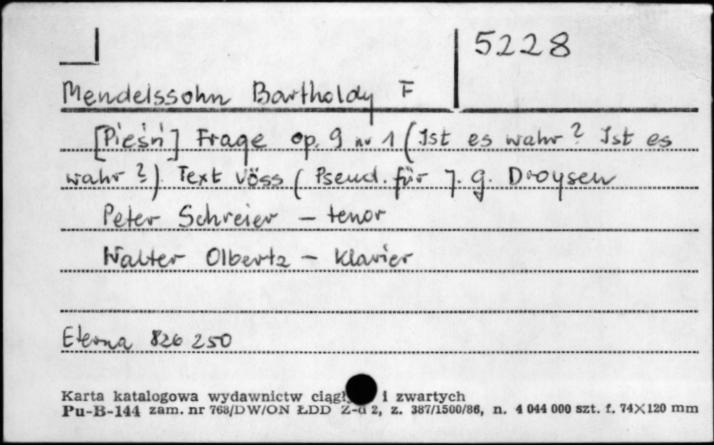 5228
Mendelssohn Bartholdy F
[Pieśń] Frage op. 9 nr 1 (Ist es wahr? Ist es
wahr?) Text Vöss (Pseud. für J. G. Droysen
Peter Schreier – tenor
Walter Olbertz – Klavier
Eterna 826 250
Karta katalogowa wydawnictw ciągł i zwartych
Pu-B-144 zam. nr 768/DW/ON ŁDD 2, z. 387/1500/86, n. 4 044 000 szt. f. 74×120 mm